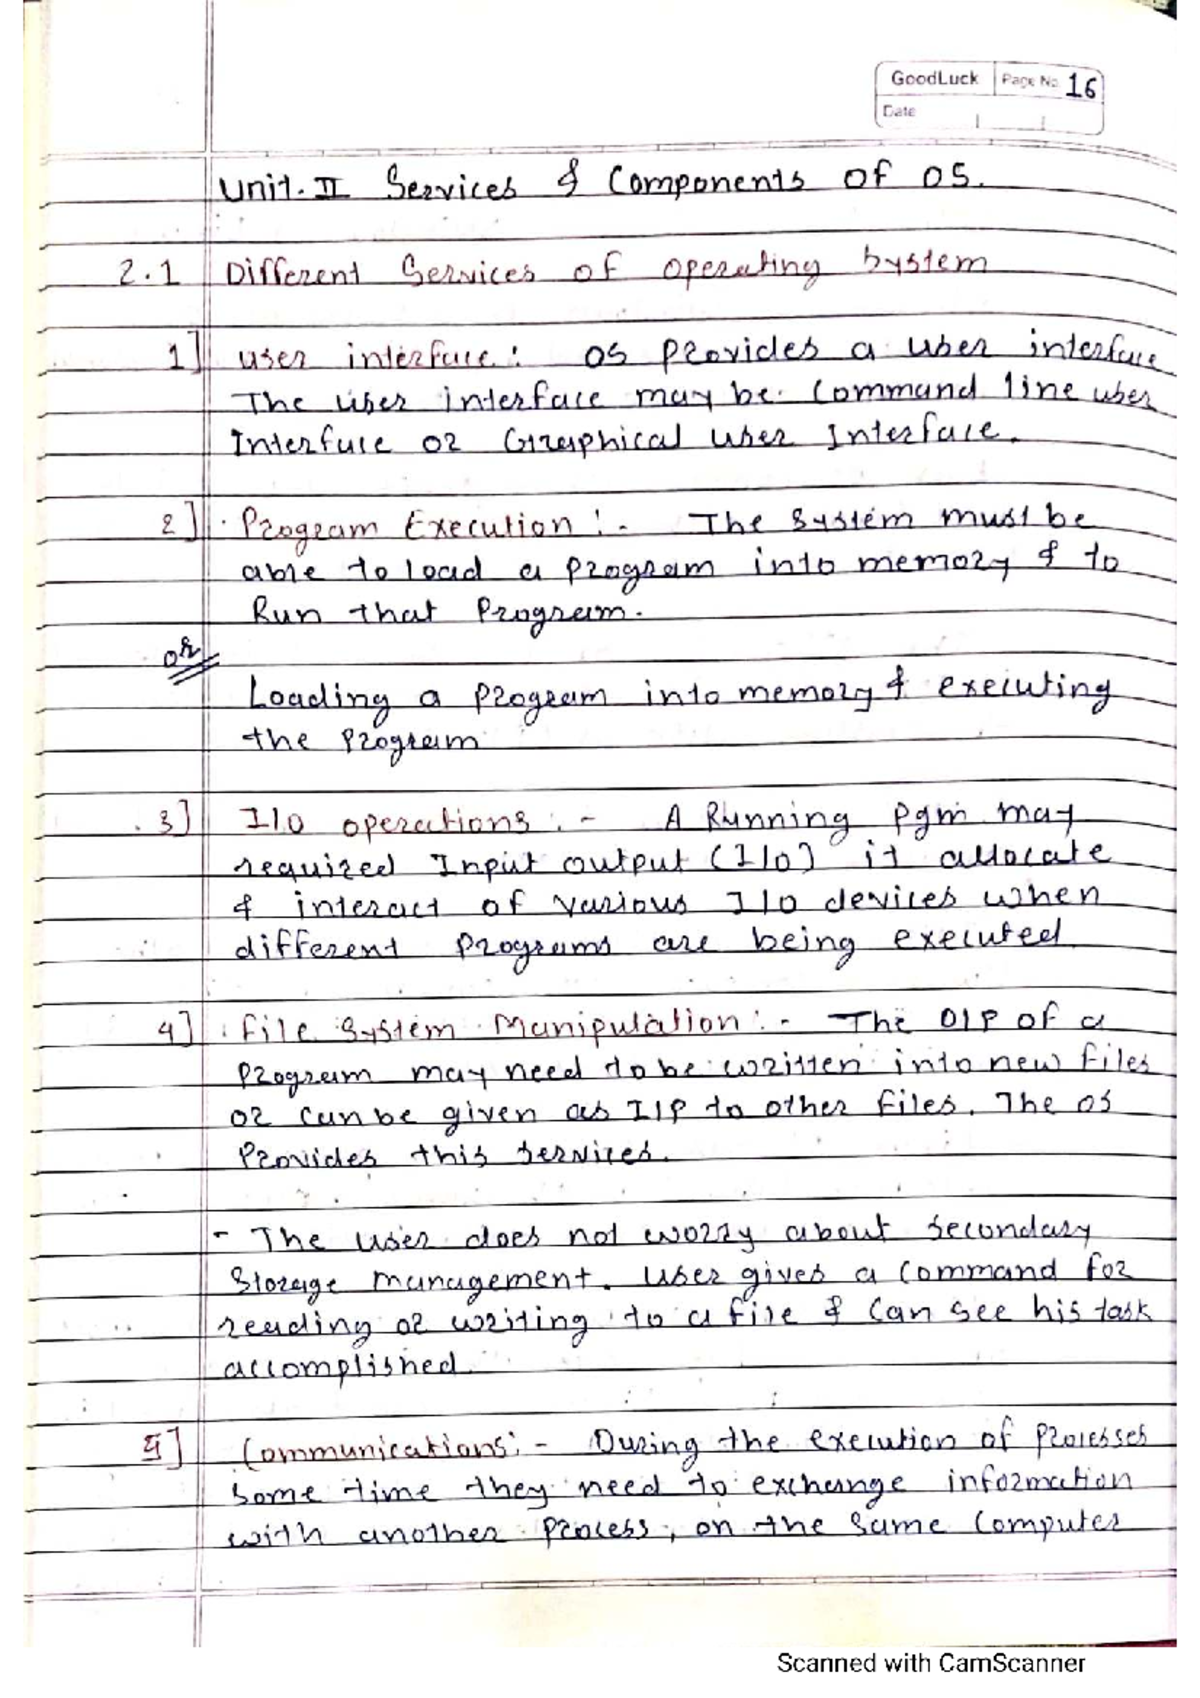 GoodLuck Page No. 16
Date
Unit. II Services & Components of OS.
2.1 Different Services of operating System
1] user interface : OS Provides a user interface
The user interface may be command line user
Interface or Graphical user Interface.
2] Program Execution :- The system must be
able to load a program into memory & to
Run that Program.
or
Loading a program into memory & executing
the Program
3] I/O operations :- A Running pgm may
required Input output (I/O) it allocate
& interact of various I/O devices when
different Programs are being executed
4] File System Manipulation :- The O/P of a
Program may need to be written into new files
or can be given as I/P to other files. The OS
Provides this services.
- The user does not worry about secondary
storage management. User gives a command for
reading or writing to a file & can see his task
accomplished.
5] Communications :- During the execution of Processes
some time they need to exchange information
with another process, on the same computer
Scanned with CamScanner